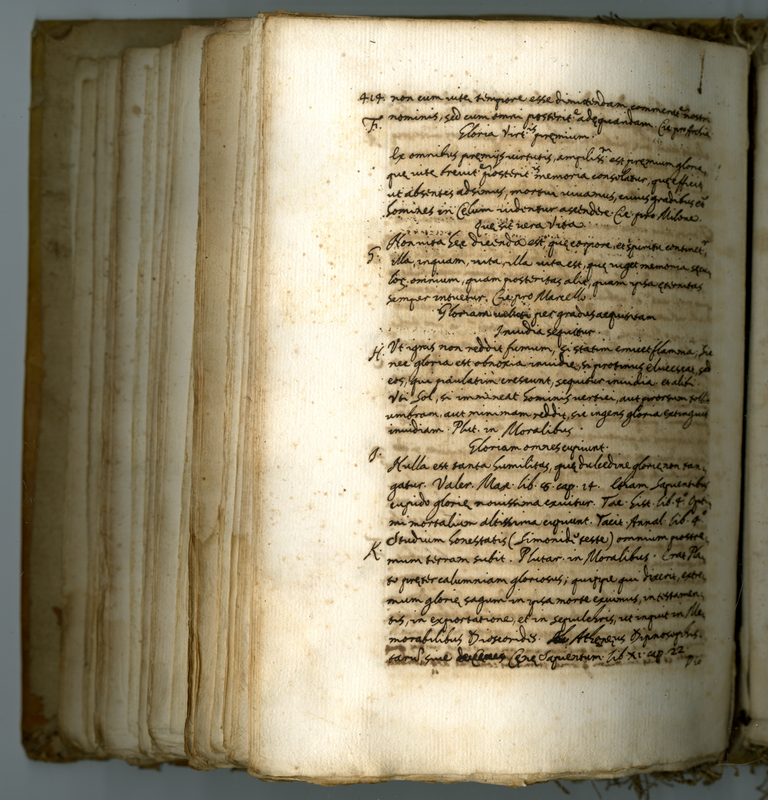 414. non cum vitę tempore esse dimittendam commemorę nostri
F. nominis, sed cum omni posteritę adęquandam. Cic. pro Archia
Gloria virt.s pręmium.
Ex omnibus pręmijs virtutis, ampliss. est pręmium glorię
quę vitę brevit. posterit. memoria consolatur, quę efficit
ut absentes adsimus, mortui vivamus, cuius gradibus et
homines in Cęlum videntur ascendere. Cic. pro Milone.
Quę sit vera Vita
G. Non vita hęc dicenda est, quę corpore, et spiritu continet.
illa, inquam, vita, illa vita est, quę viget memoria sęcu
loʒ omnium, quam posteritas alit, quam ipsa ęternitas
semper intuetur. Cic. pro Marcello.
Gloriam per gradus aequisitam
Invidia sequitur.
H. Ut ignis non reddit fumum, si statim emicet flamma, sic
nec gloria est obnoxia invidię, si protinus elucescat, sed
eos, qui paulatim crescunt, sequitur invidia. et alibi.
Uti Sol, si immineat hominis vertici, aut prorsum tollit
umbram, aut minimam reddit, sic ingens gloria extinguit
invidiam. Plut. in Moralibus.
Gloriam omnes cupiunt.
J. Nulla est tanta humilitas, quę dulcedine glorię non tan
gatur. Valer. Max. lib. 8. cap. 14. Etiam Sapientibus
cupido glorię novissima exuitur. Tac. hist. lib. 4. Opti
mi mortalium altissima cupiunt. Tacit. Annal. lib. 4.
Studium honestatis (Simonidę teste) omnium postre
K. mum terram subit. Plutar. in Moralibus. Erat Pla
to pręter calumniam gloriosus; quippe qui dixerit, extre
mum glorię sagum in ipsa morte exuimus, in testamen
tis, in exportatione, et in sepulchris, ut inquit in Me
morabilibus Dioscorides. Athenęus Dipnosophis
tarum sive Cęnę Sapientum lib. XI. cap. 22